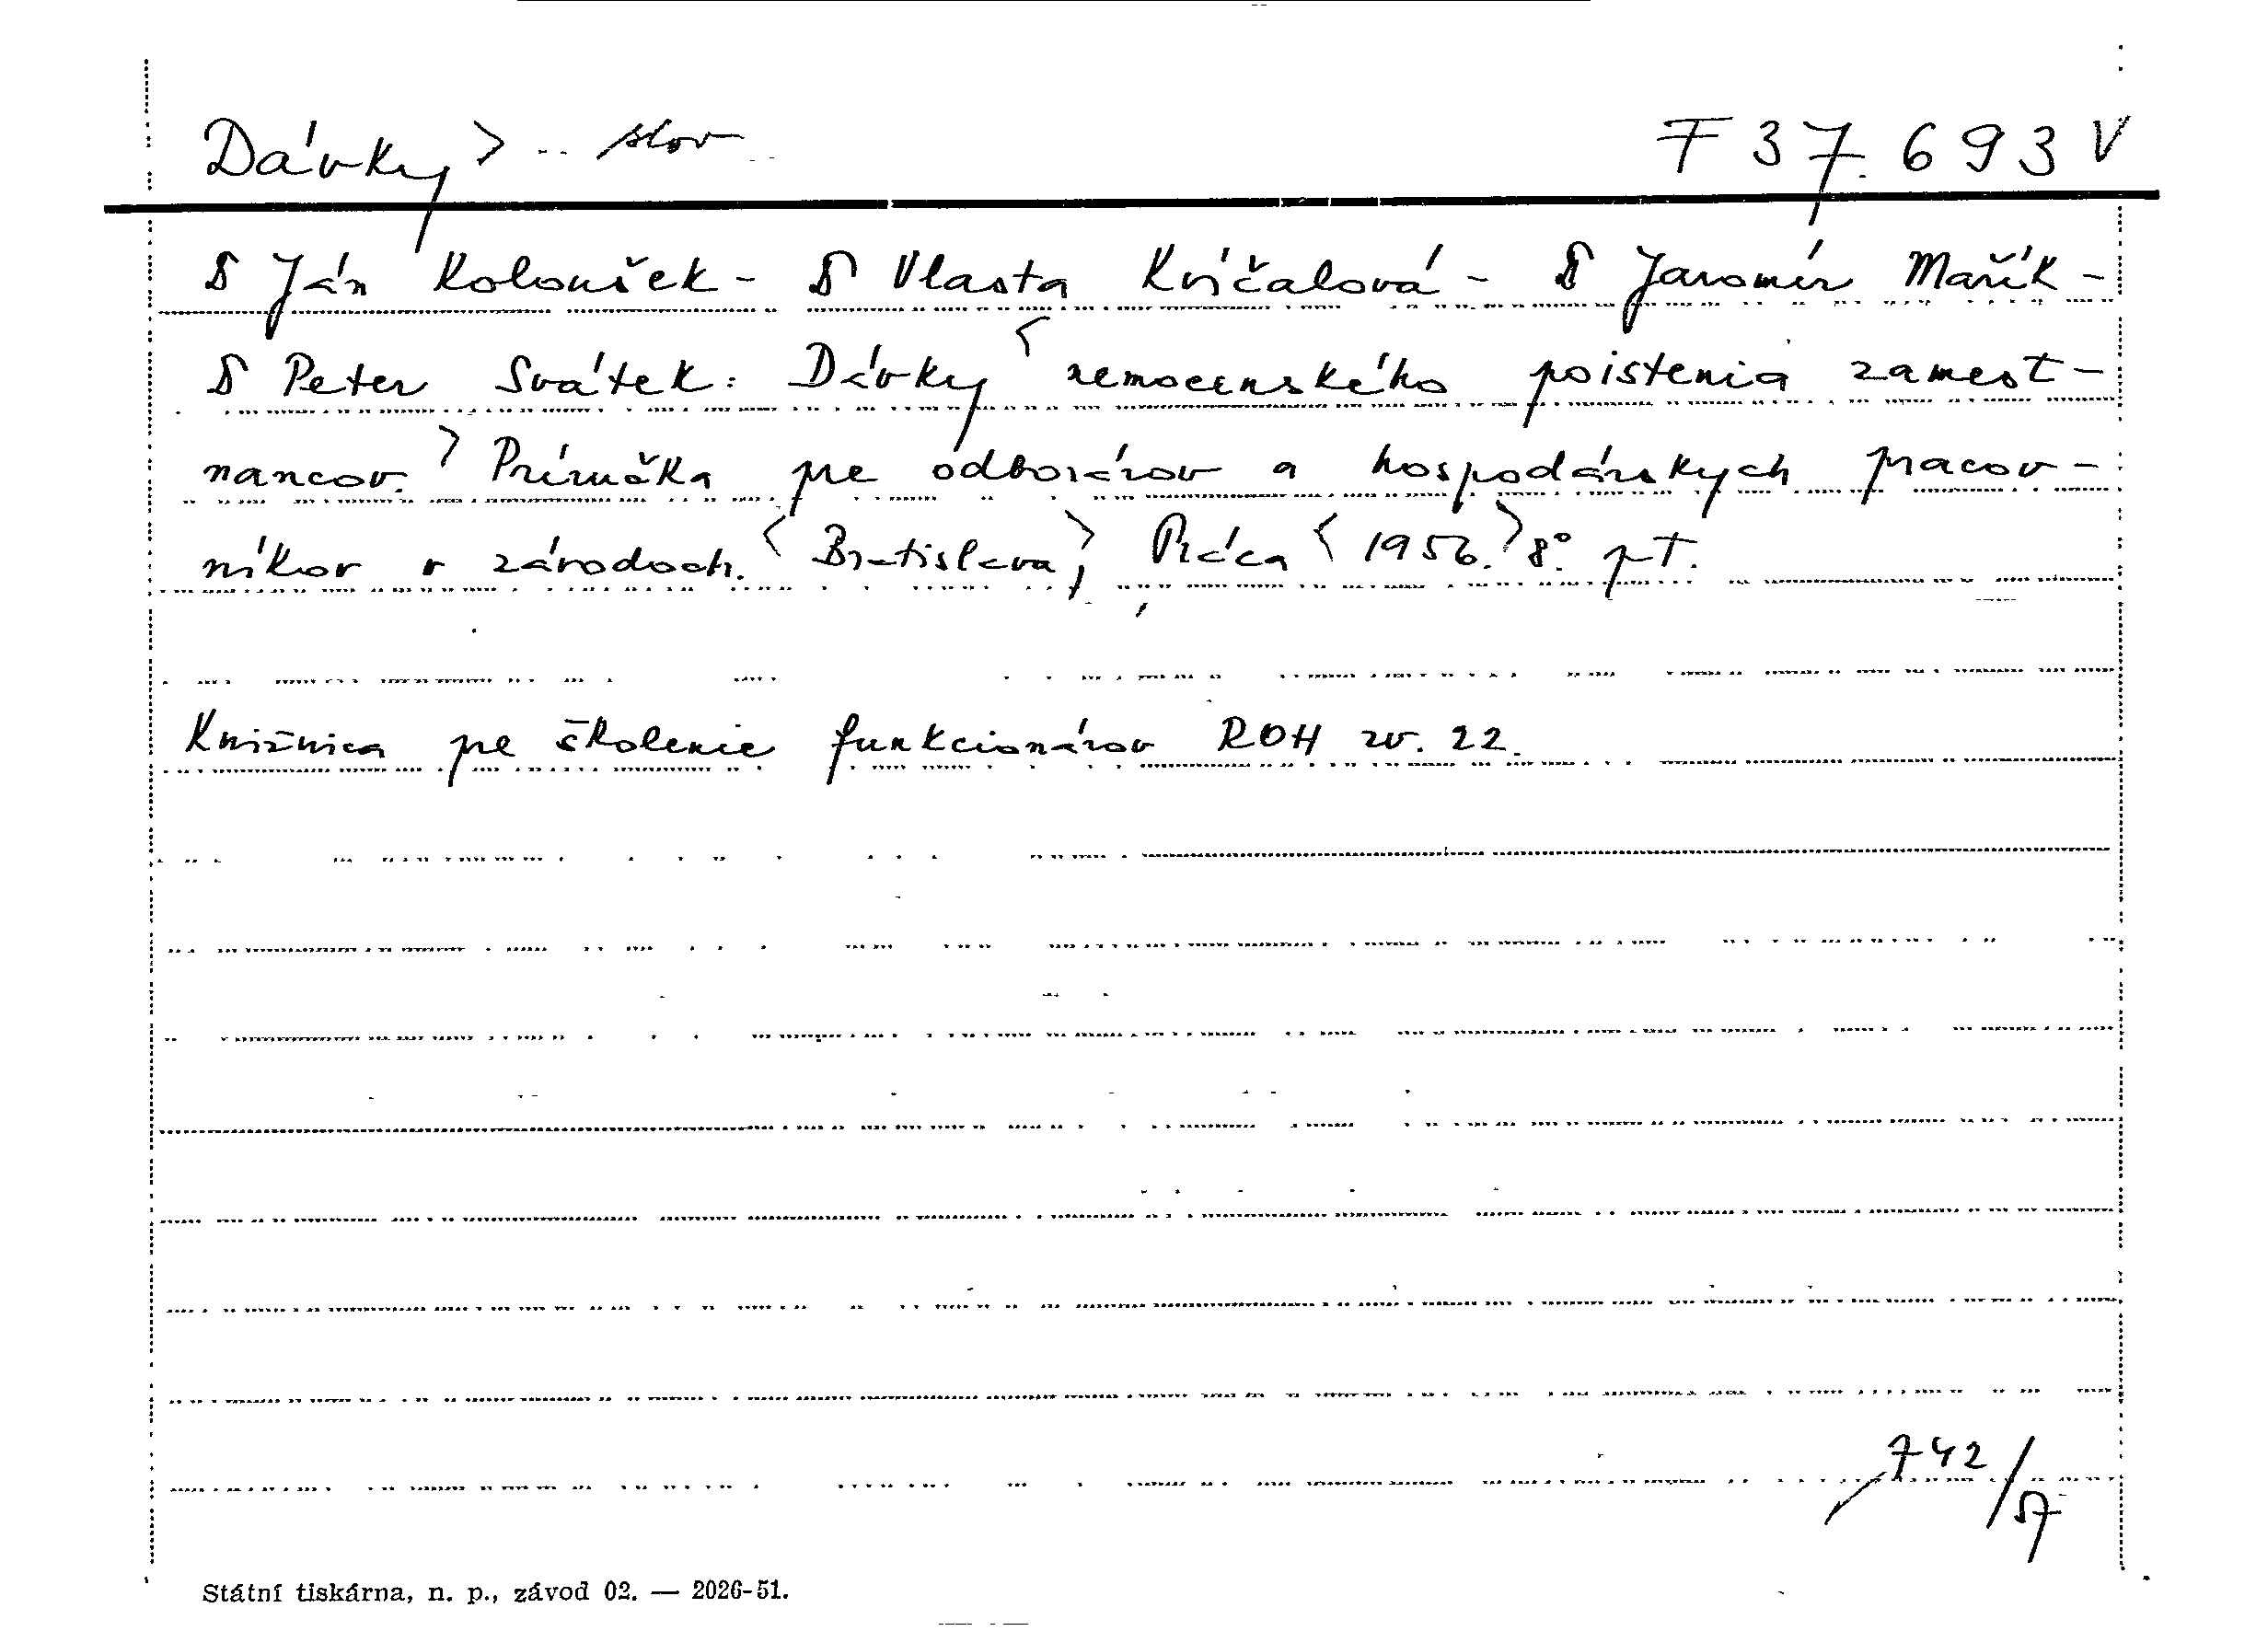 Dávky > .. slov F 37.693 V
Ján Koloušek - Vlasta Kvíčalová - Jaromír Mařík -
Peter Svátek: Dávky < nemocenského poistenia zamest-
nancov. > Príručka pre odborárov a hospodárskych pracov-
níkov v závodoch. < Bratislava >, Práca < 1956. > 8°. pt.
Knižnica pre školenie funkcionárov ROH zv. 22.
742/57
Státní tiskárna, n. p., závod 02. — 2026-51.